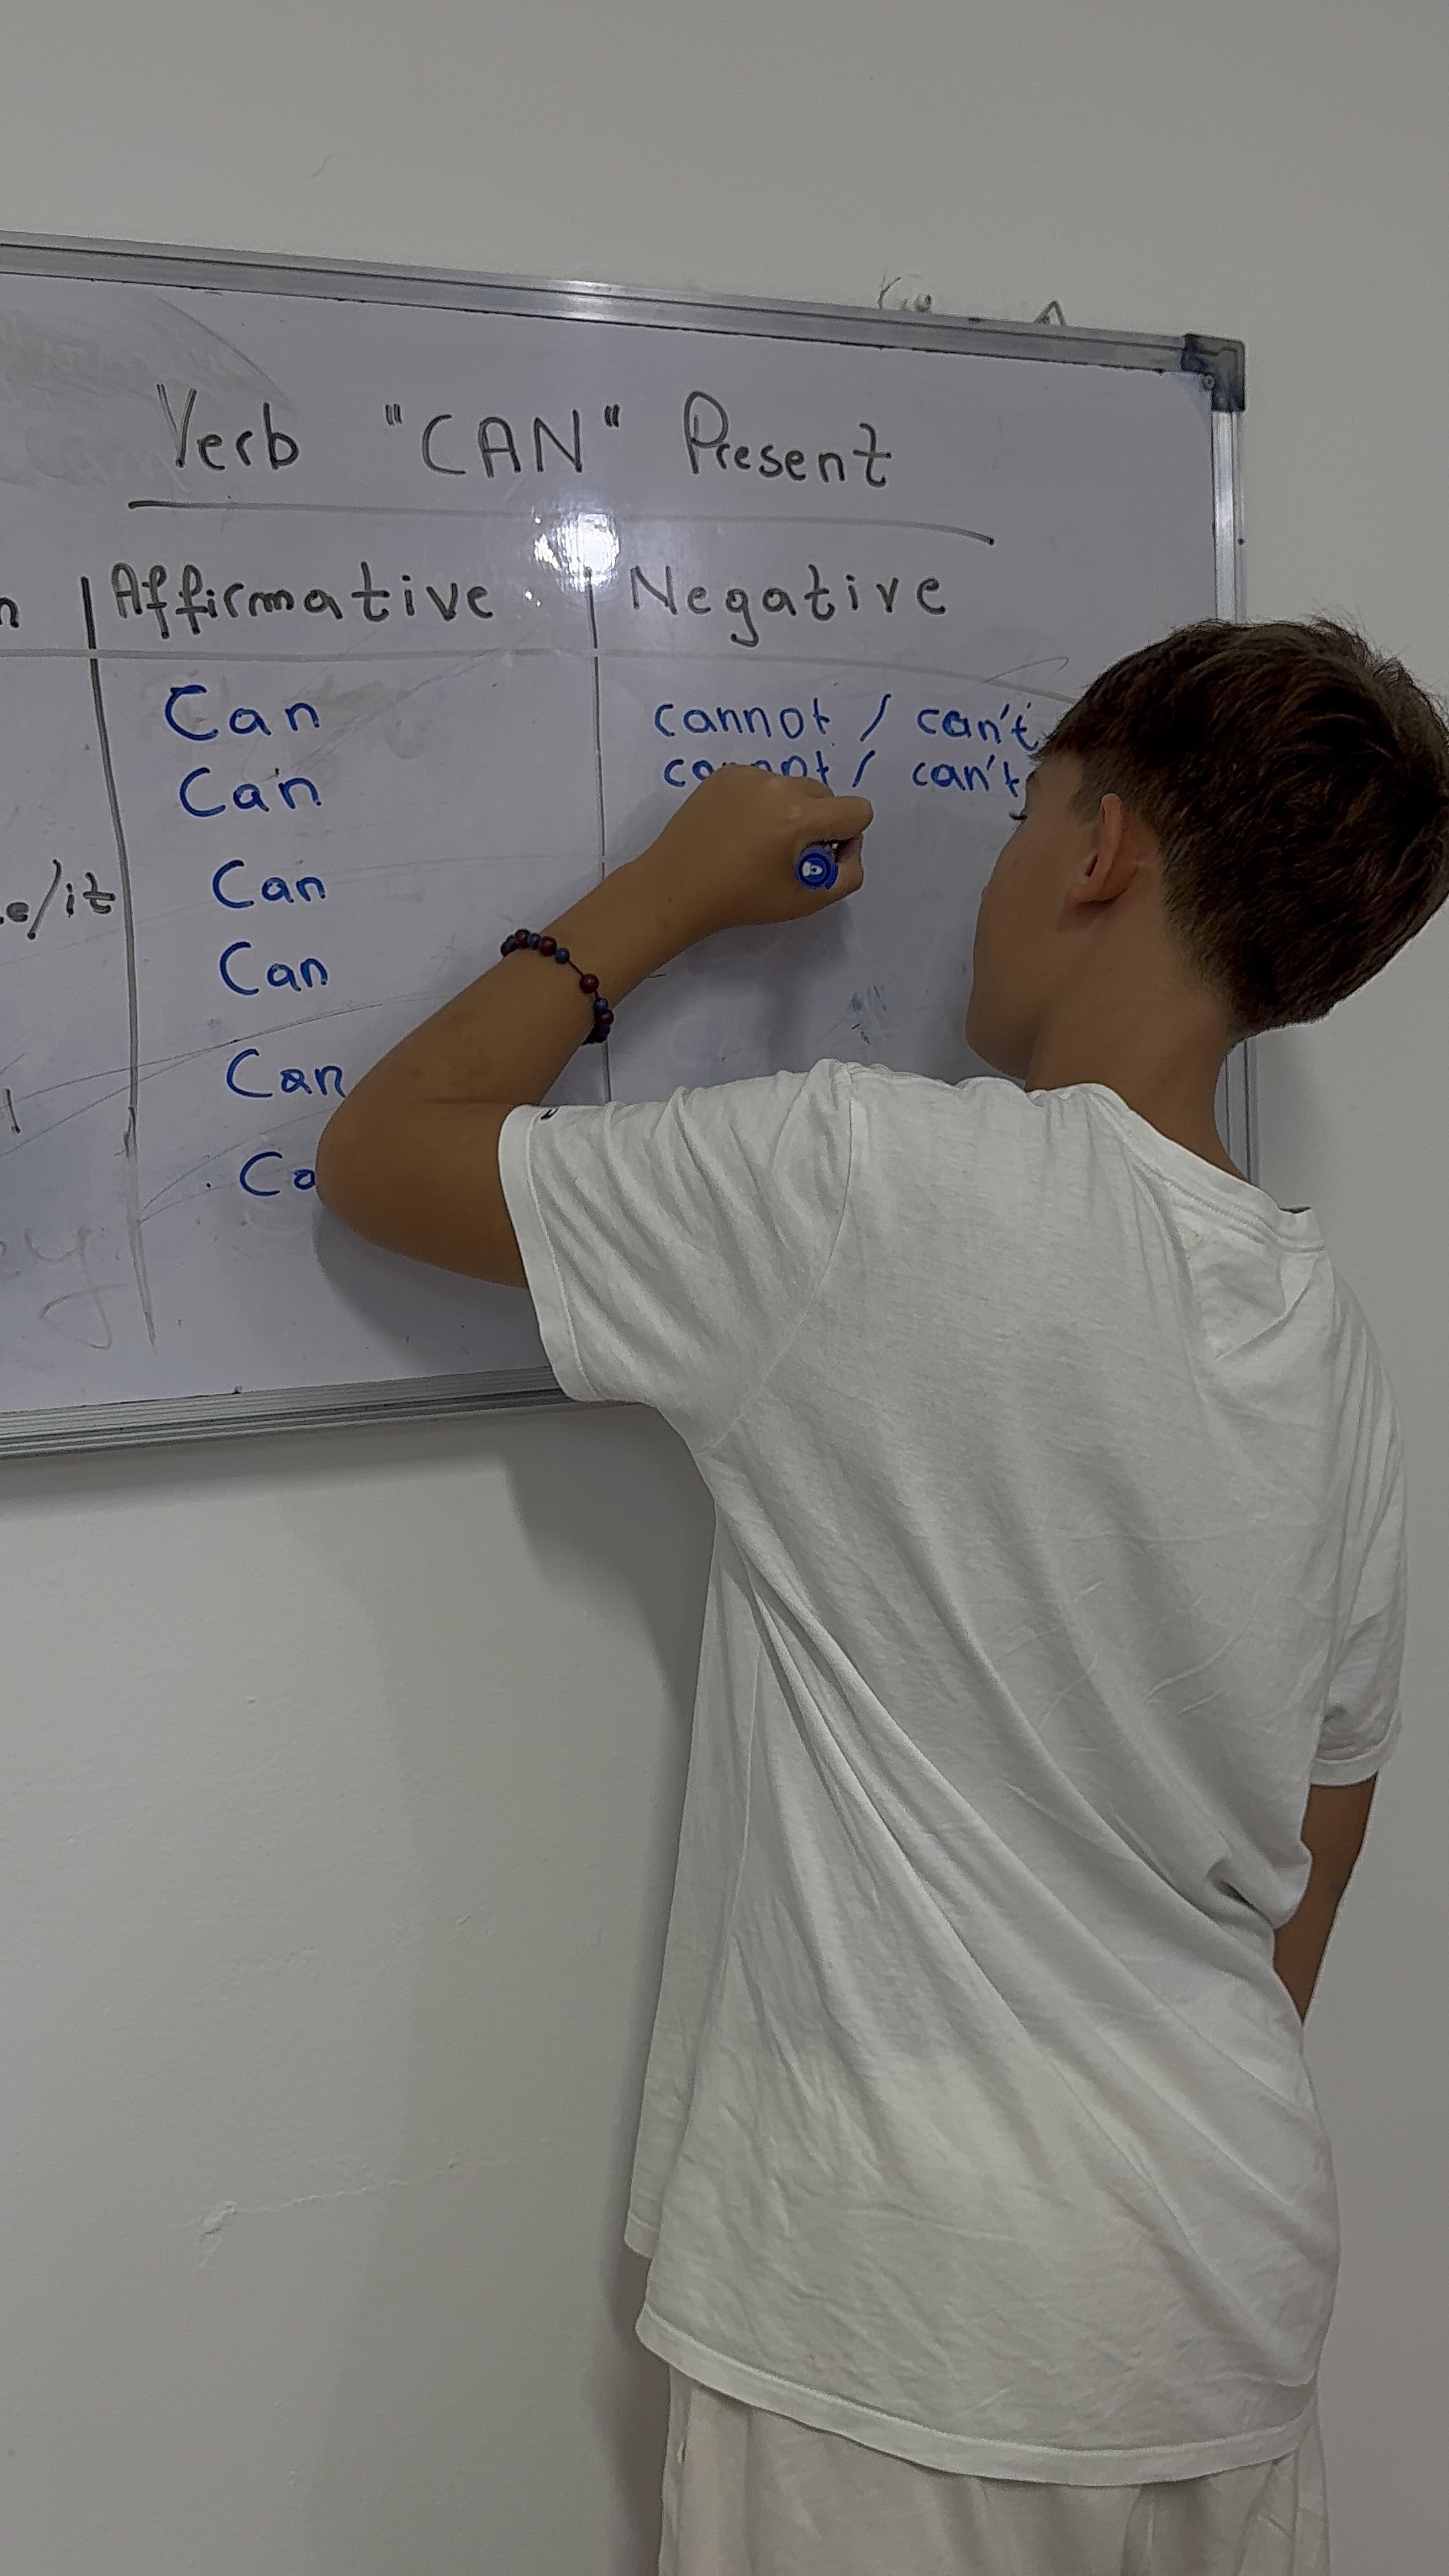 Verb "CAN" Present
Affirmative Negative
Can cannot / can't
Can cannot / can't
/it Can
Can
Can